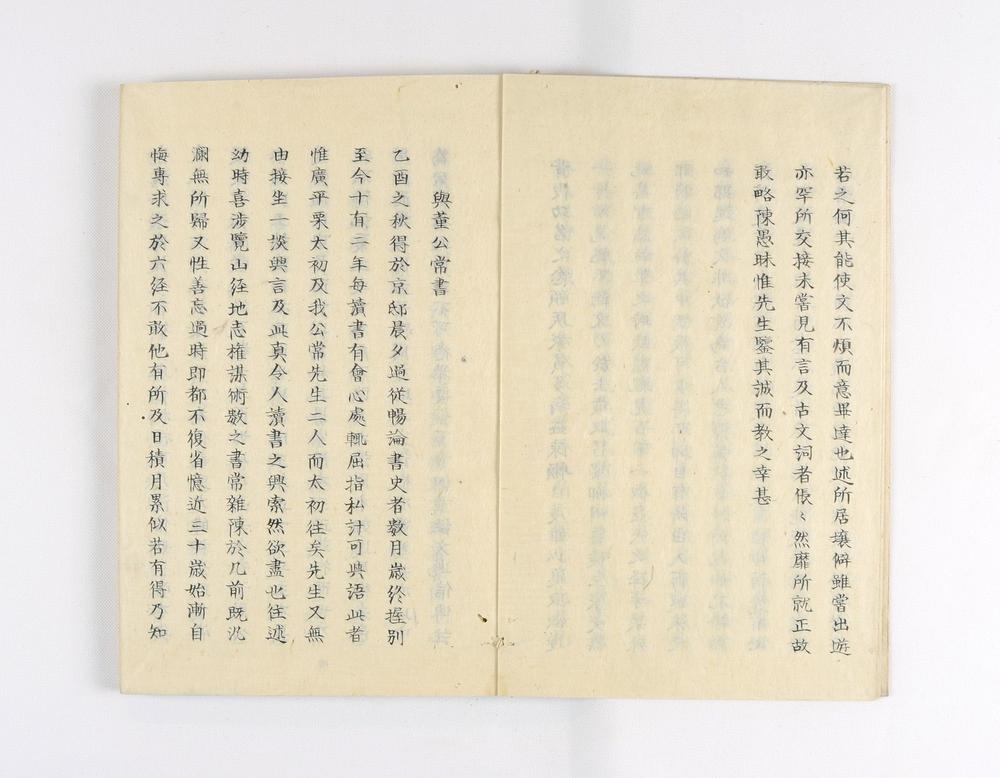 若之何其能使文不煩而意畢達也述所居壤僻雖嘗出遊
亦罕所交接未嘗見有言及古文詞者倀〻然靡所就正故
敢略陳愚昧惟先生鑒其誠而教之幸甚
與董公常書
乙酉之秋得於京邸晨夕過從暢論書史者數月歲終握別
至今十有二年每讀書有會心處輒屈指私計可與語此者
惟廣平栗太初及我公常先生二人而太初往矣先生又無
由接坐一談興言及此真令人讀書之興索然欲盡也往述
幼時喜涉覽山經地志權謀術數之書常雜陳於几前既汎
瀾無所歸又性善忘過時即都不復省憶近三十歲始漸自
悔專求之於六經不敢他有所及日積月累似若有得乃知